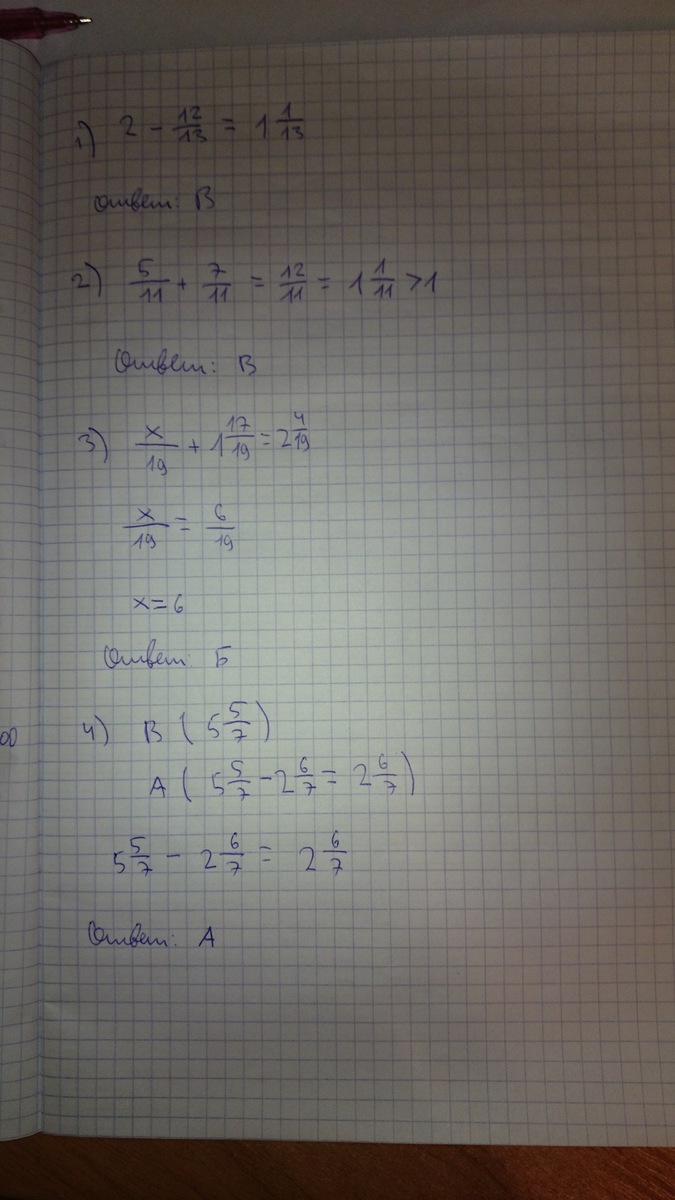 1) 2 - 12/13 = 1 1/13
Ответ: В
2) 5/11 + 7/11 = 12/11 = 1 1/11 > 1
Ответ: В
3) x/19 + 1 17/19 = 2 4/19
x/19 = 6/19
x = 6
Ответ: Б
00
4) В ( 5 5/7 )
А ( 5 5/7 - 2 6/7 = 2 6/7 )
5 5/7 - 2 6/7 = 2 6/7
Ответ: А